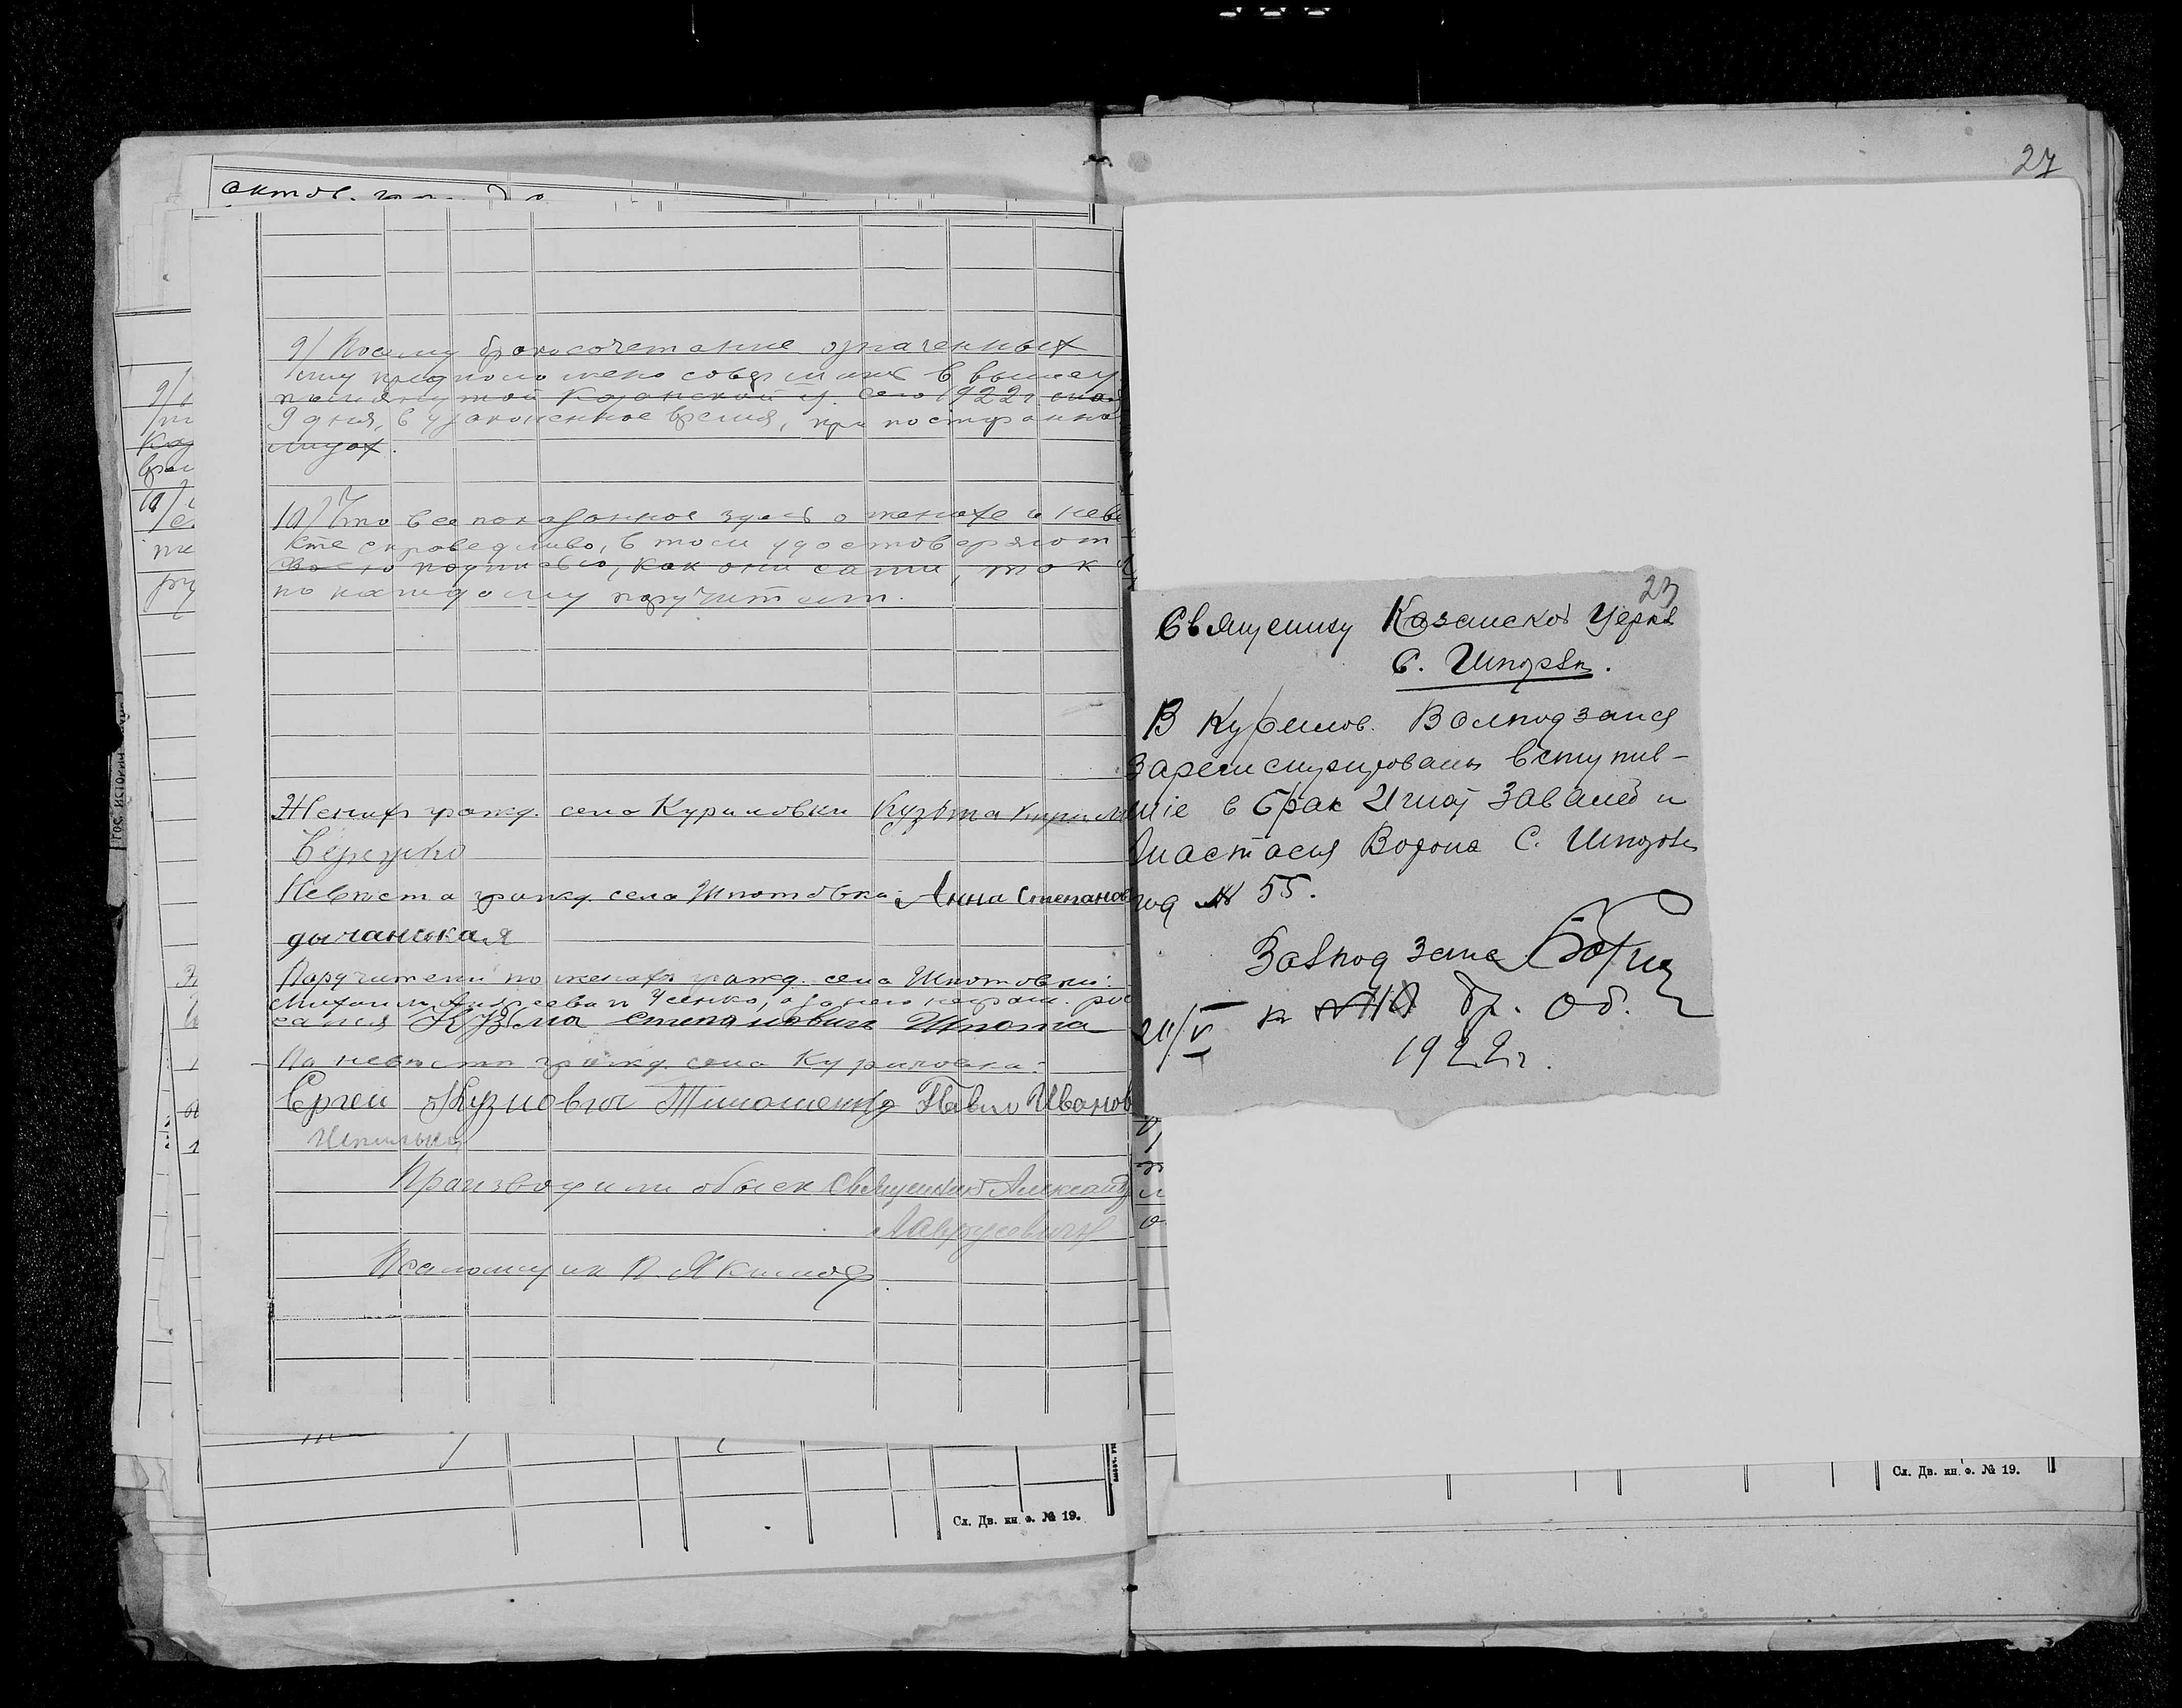 27
9/ Посему бракосочетание означенных
лиц предположено совершить в вышеу
помянутой Казанской ц. Сего 1922 г. мая
9 дня, в узаконенное время, при посторонних
лицах.
10/ Что все показанное здесь о женихе и неве
сте справедливо, в том удостоверяют
подписью, как они сами, так
по каждому поручители.
Жених гражд. села Куриловки Кузьма
Бережко
Невеста гражд. села Шпотовки: Анна Степанов
дычанская
Поручители по женихе гражд. села Шпотовки:
Михаил Андреевич Усенко, а за него неграм. рос
Кузьма Степанович Шпота
По невесте гражд. села Куриловки:
Сергей Кузмович Тимошенко Павло Иванов
Шпилька
Производили обыск Священник Александр
Лаврусевич
Псаломщик П. Якимов
Сл. Дв. кн. ф. № 19.
23
Священику Казанской Церкв
С. Шпотовк.
В Курилов. Волподзагся
Зарегистрированы вступив-
шіе в брак Игнат Завалей и
Анастасия Ворона С. Шпотовк
под № 55.
Завподзагс
24/V к № 10 бр. об.
1922 г.
Сл. Дв. кн. ф. № 19.